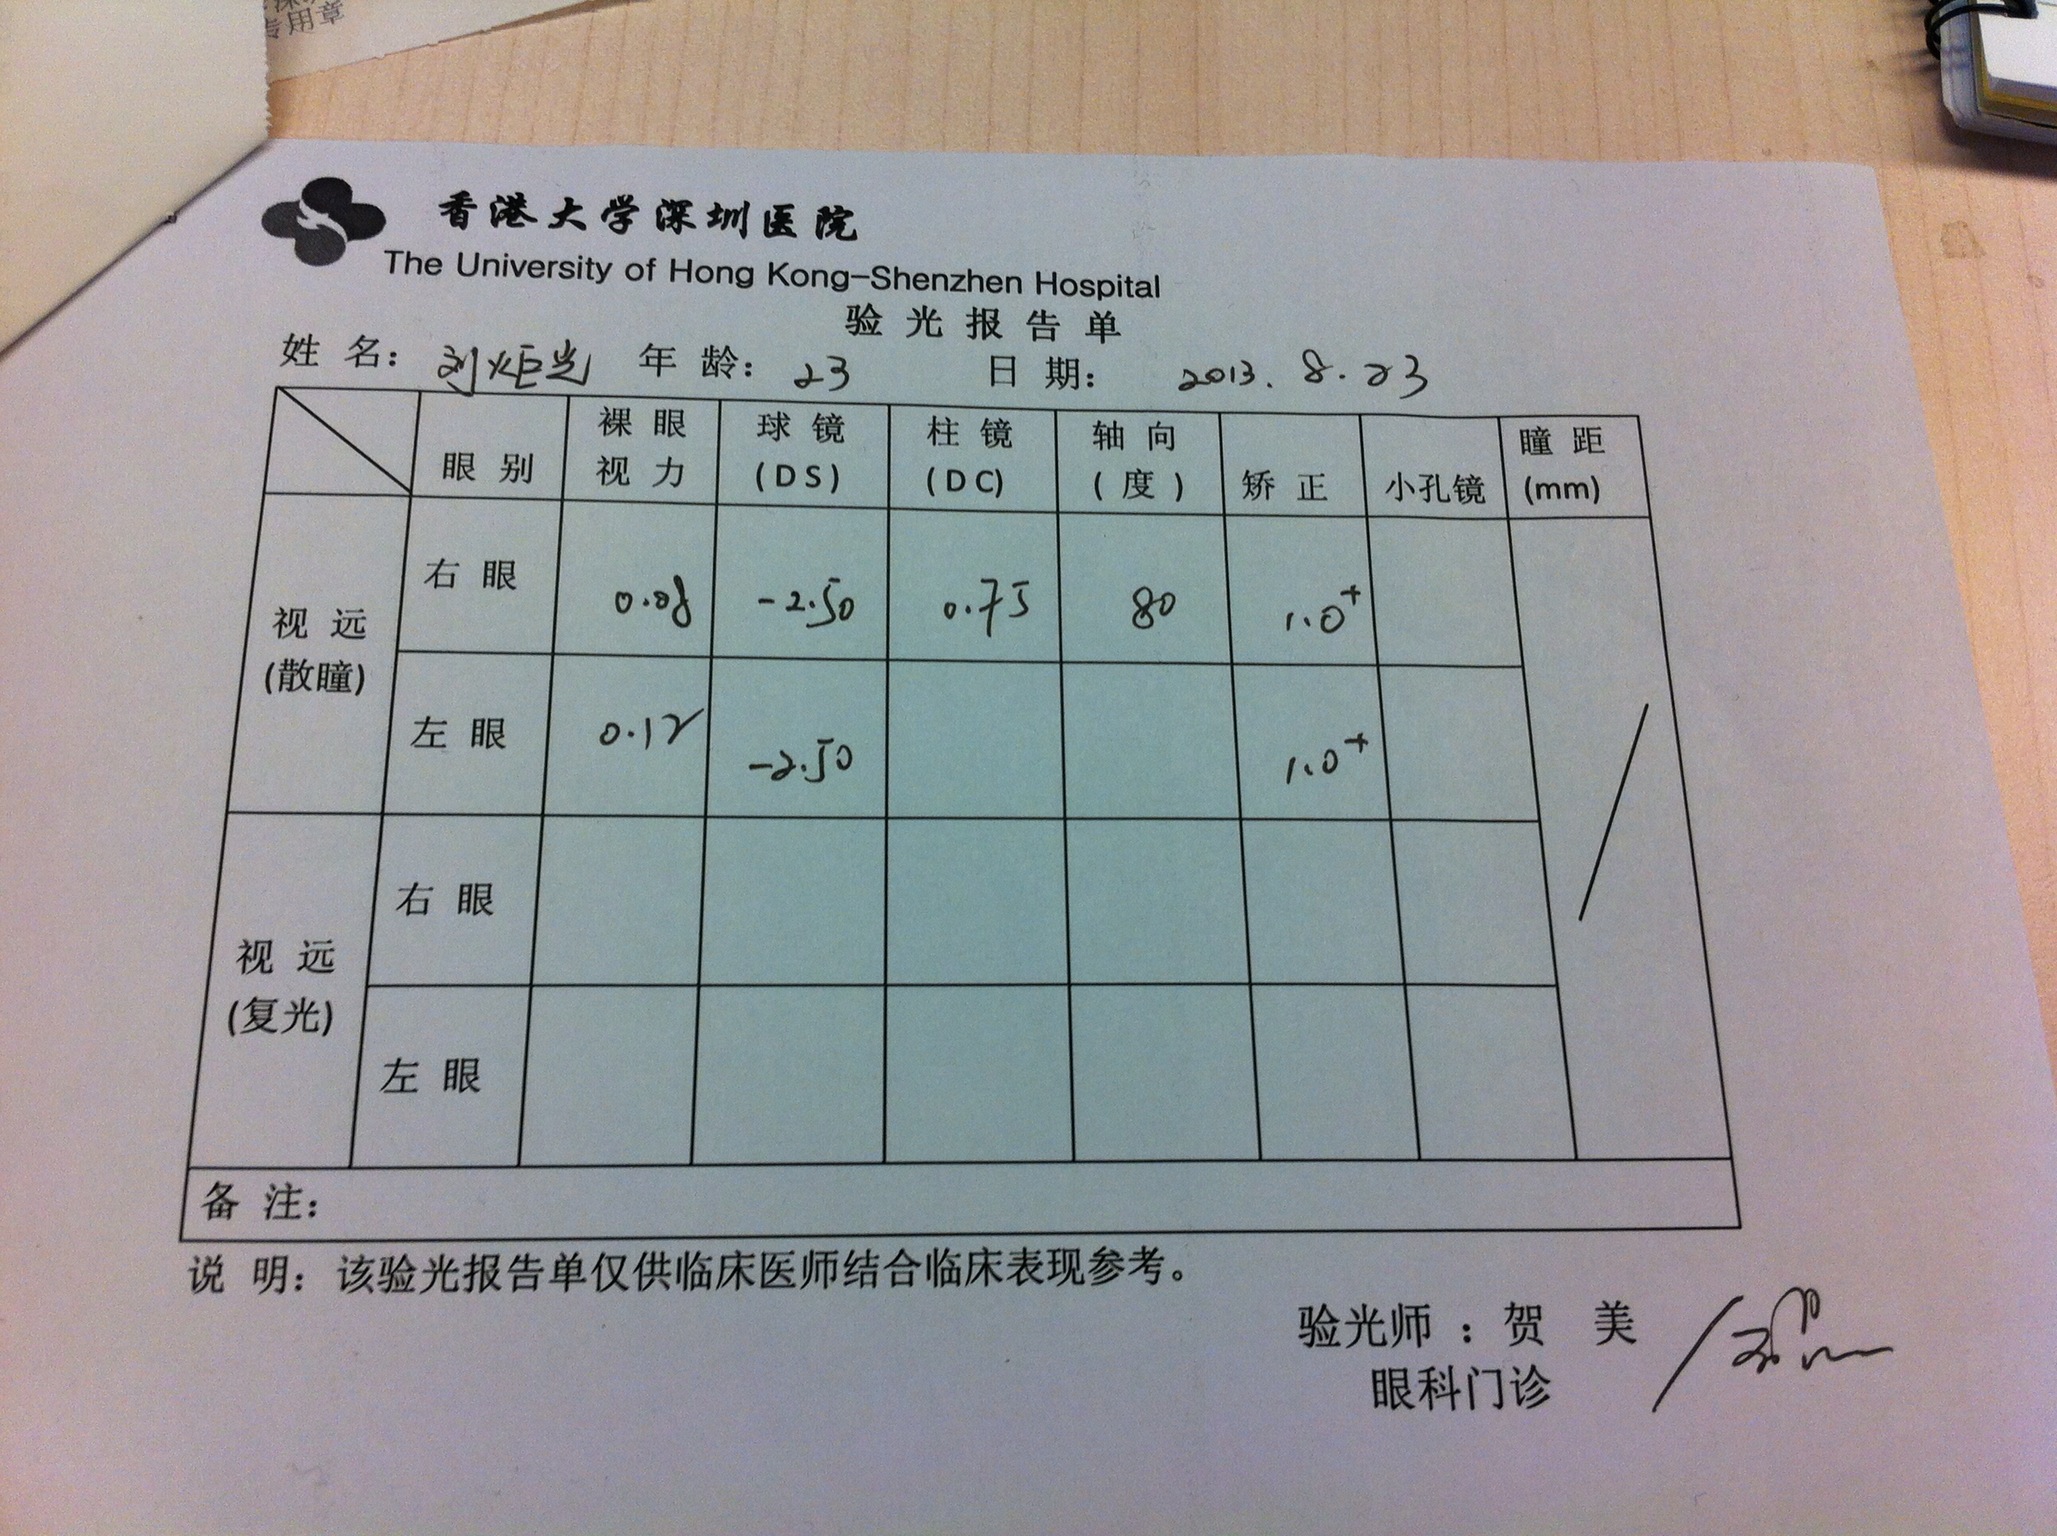 专用章
香港大学深圳医院
The University of Hong Kong-Shenzhen Hospital
验光报告单
姓名： 刘炬光 年龄： 23 日期： 2013.8.23
眼别 裸眼视力 球镜(DS) 柱镜(DC) 轴向(度) 矫正 小孔镜 瞳距(mm)
视远(散瞳) 右眼 0.08 -2.50 0.75 80 1.0+
左眼 0.12 -2.50 1.0+
视远(复光) 右眼
左眼
备注：
说明：该验光报告单仅供临床医师结合临床表现参考。
验光师：贺美
眼科门诊